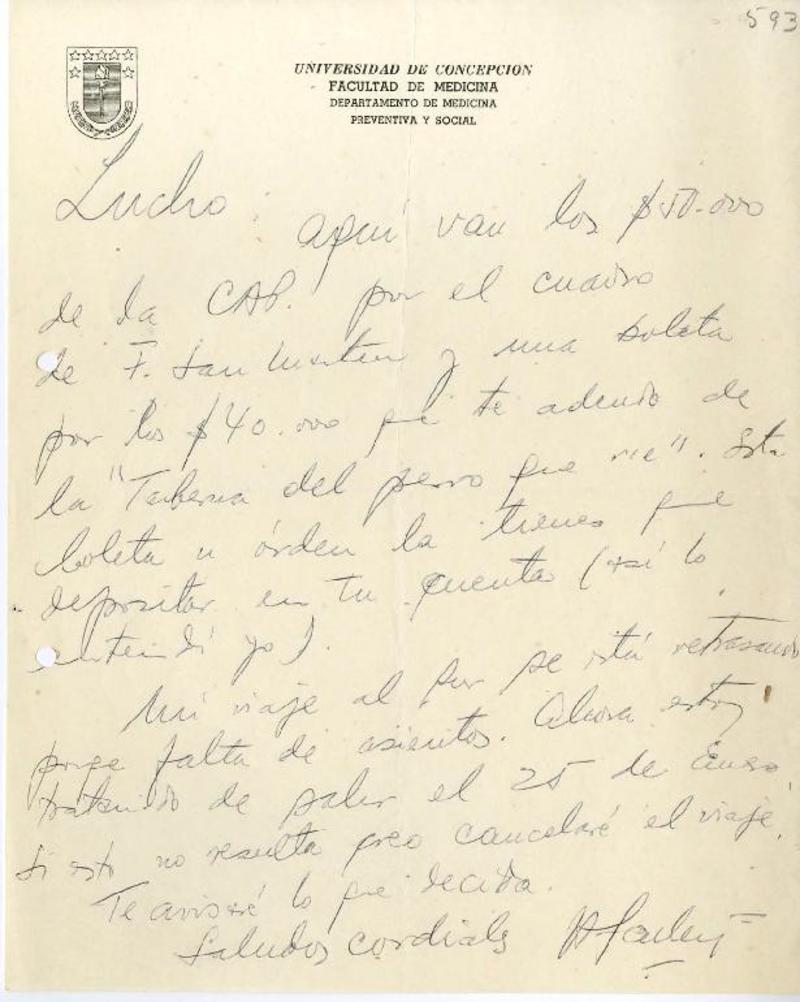 593
UNIVERSIDAD DE CONCEPCION
FACULTAD DE MEDICINA
DEPARTAMENTO DE MEDICINA
PREVENTIVA Y SOCIAL
Lucho: aquí van los $50.000
de la CAP. por el cuadro
de F. San Martín y una boleta
por los $40.000 que te adeudo de
la "Taberna del perro que rie". Esta
boleta u órden la tienes que
depositar en tu cuenta (así lo
entendí yo).
Mi viaje al sur se está retrasando
porque falta de asientos. Ahora estoy
tratando de salir el 25 de Enero.
Si esto no resulta creo cancelaré el viaje.
Te avisaré lo que decida.
Saludos cordiales